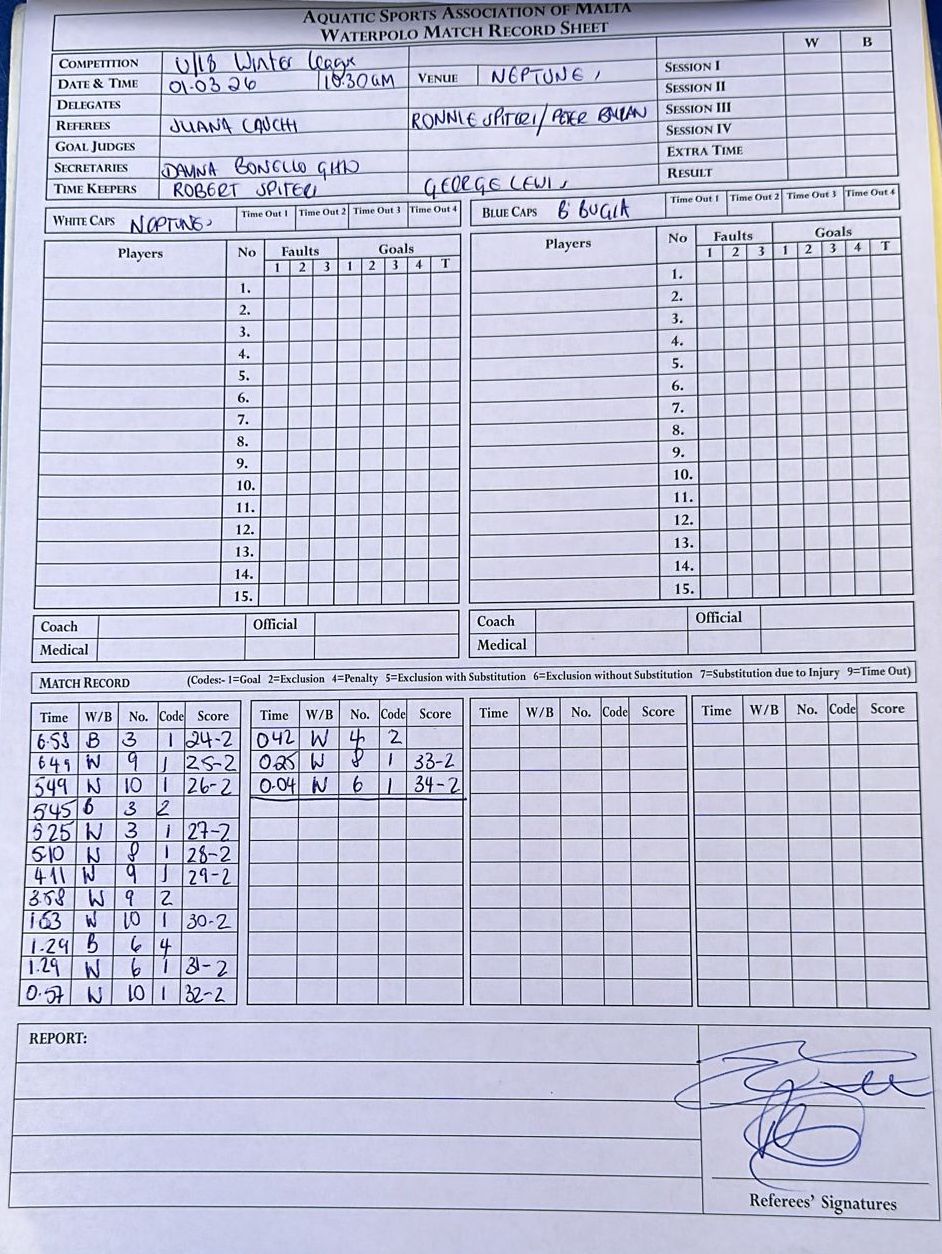 AQUATIC SPORTS ASSOCIATION OF MALTA
WATERPOLO MATCH RECORD SHEET
W B
COMPETITION U/18 Winter League
DATE & TIME 01-03 26 10:30AM VENUE NEPTUNES
DELEGATES
REFEREES JUANA CAUCHI RONNIE SPITERI/PETER
GOAL JUDGES
SECRETARIES BONELLO
TIME KEEPERS ROBERT SPITERI GEORGE LEWIS
SESSION I
SESSION II
SESSION III
SESSION IV
EXTRA TIME
RESULT
WHITE CAPS NEPTUNES Time Out 1 Time Out 2 Time Out 3 Time Out 4
BLUE CAPS B'BUGIA Time Out 1 Time Out 2 Time Out 3 Time Out 4
Players No Faults Goals
1 2 3 1 2 3 4 T
1.
2.
3.
4.
5.
6.
7.
8.
9.
10.
11.
12.
13.
14.
15.
Players No Faults Goals
1 2 3 1 2 3 4 T
1.
2.
3.
4.
5.
6.
7.
8.
9.
10.
11.
12.
13.
14.
15.
Coach Official
Medical
Coach Official
Medical
MATCH RECORD (Codes:- 1=Goal 2=Exclusion 4=Penalty 5=Exclusion with Substitution 6=Exclusion without Substitution 7=Substitution due to Injury 9=Time Out)
Time W/B No. Code Score
6.58 B 3 1 24-2
649 W 9 1 25-2
549 W 10 1 26-2
545 B 3 2
525 W 3 1 27-2
510 W 8 1 28-2
411 W 9 1 29-2
3.58 W 9 2
153 W 10 1 30-2
1.29 B 6 4
1.29 W 6 1 31-2
0.57 W 10 1 32-2
Time W/B No. Code Score
042 W 4 2
025 W 8 1 33-2
0.04 W 6 1 34-2
Time W/B No. Code Score
Time W/B No. Code Score
REPORT:
Referees' Signatures